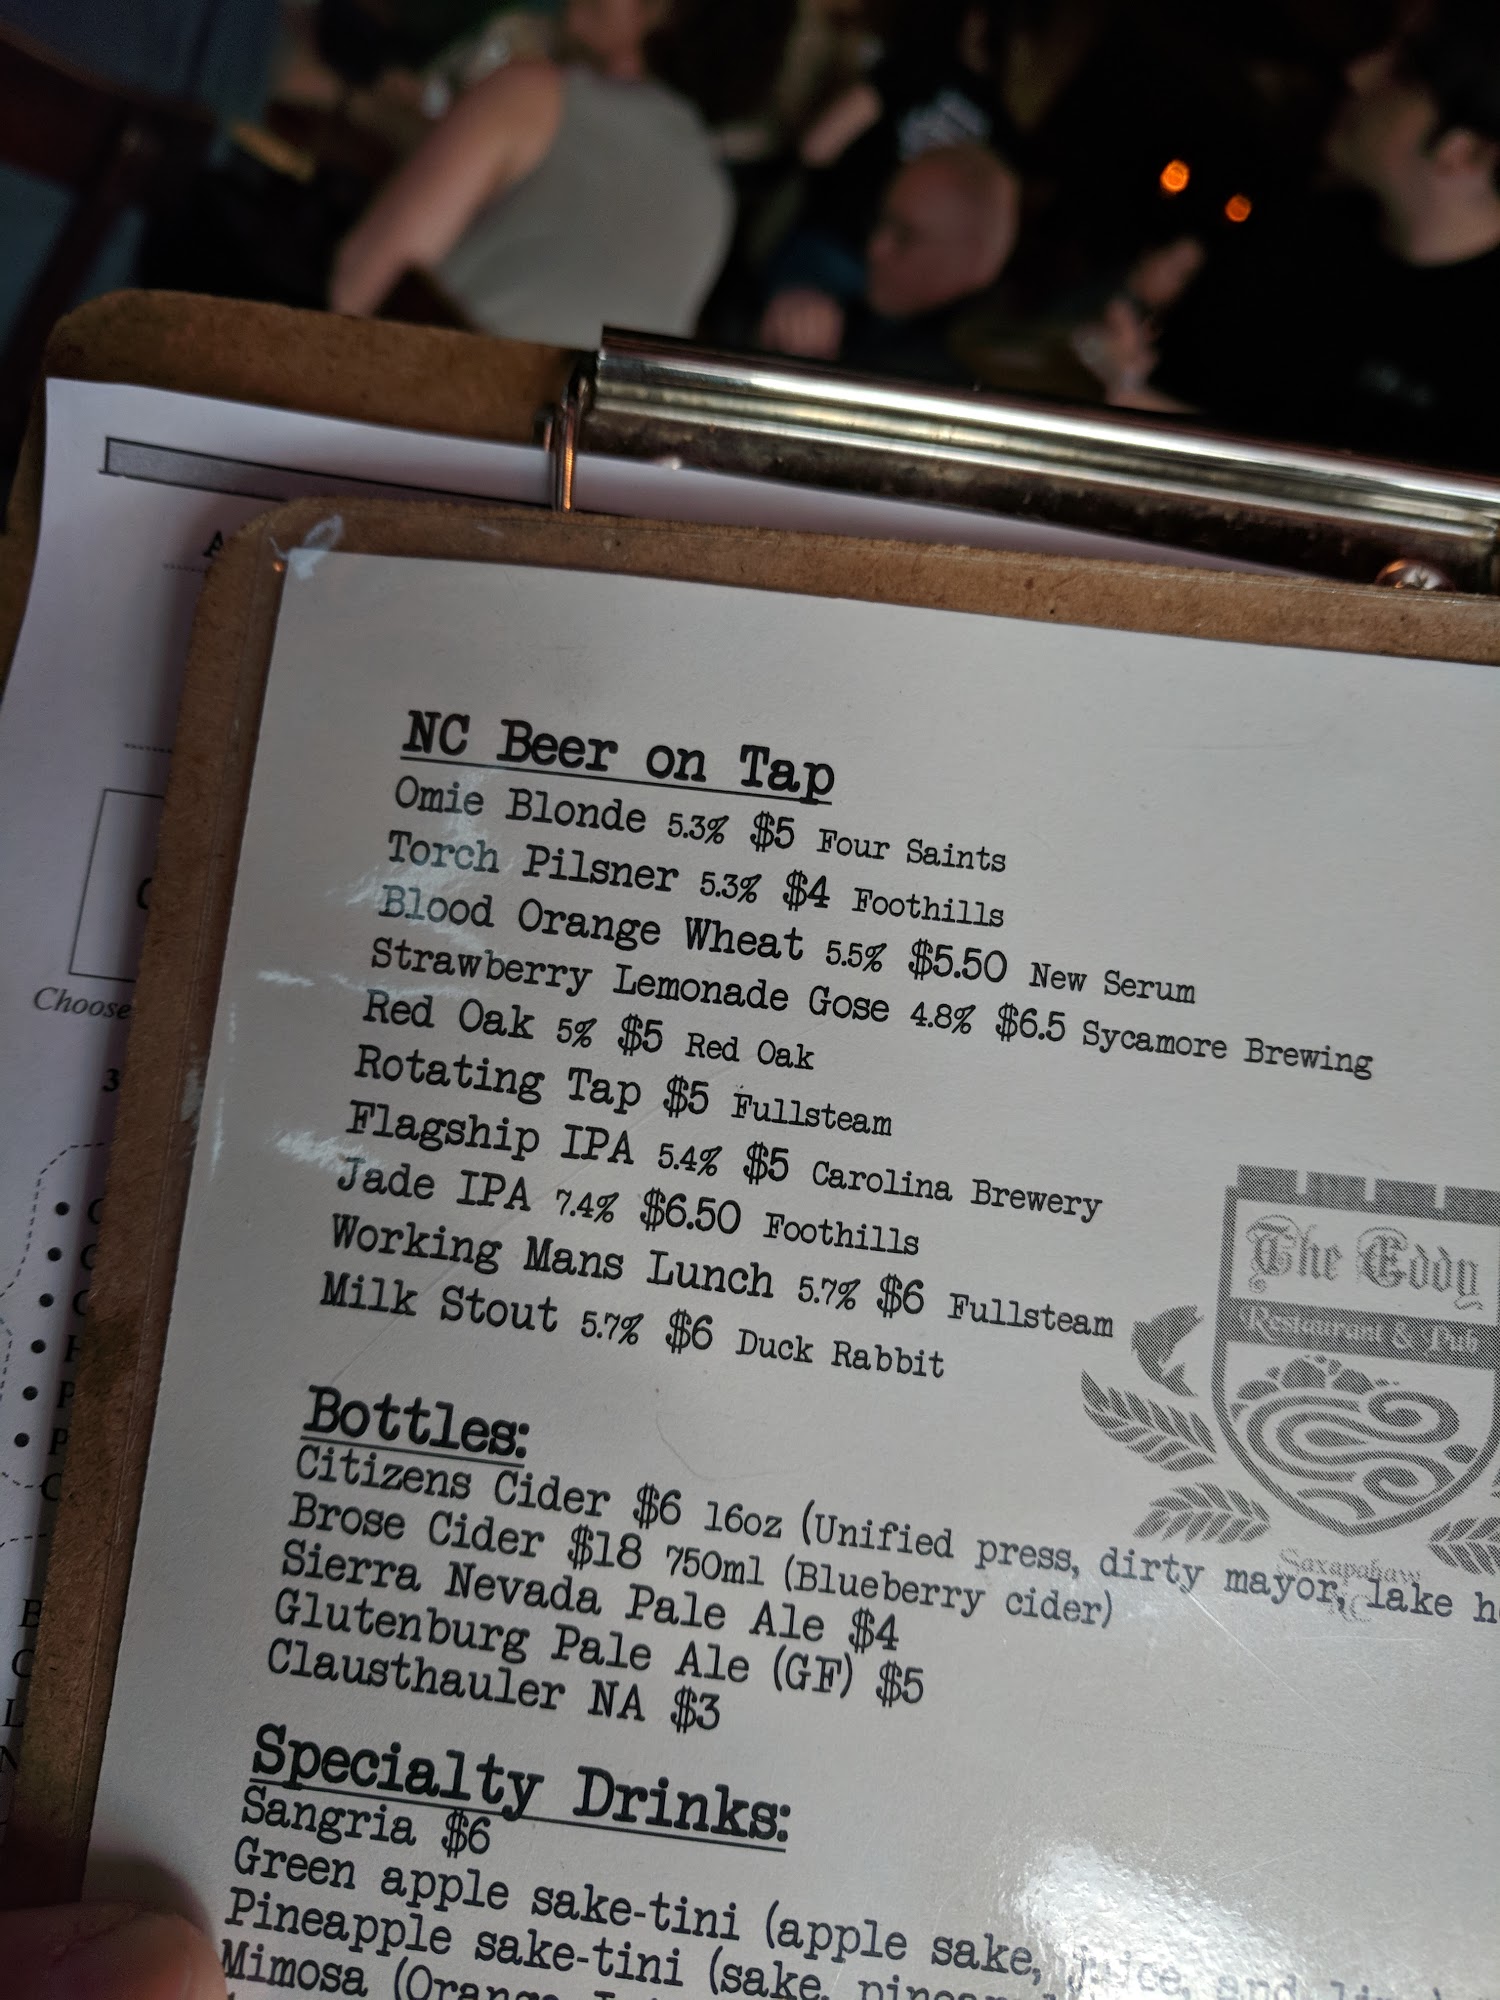 NC Beer on Tap
Omie Blonde 5.3% $5 Four Saints
Torch Pilsner 5.3% $4 Foothills
Blood Orange Wheat 5.5% $5.50 New Serum
Strawberry Lemonade Gose 4.8% $6.5 Sycamore Brewing
Red Oak 5% $5 Red Oak
Rotating Tap $5 Fullsteam
Flagship IPA 5.4% $5 Carolina Brewery
Jade IPA 7.4% $6.50 Foothills
Working Mans Lunch 5.7% $6 Fullsteam
Milk Stout 5.7% $6 Duck Rabbit
The Eddy
Restaurant & Pub
Saxapahaw
NC
Bottles:
Citizens Cider $6 16oz (Unified press, dirty mayor, lake
Brose Cider $18 750ml (Blueberry cider)
Sierra Nevada Pale Ale $4
Glutenburg Pale Ale (GF) $5
Clausthauler NA $3
Specialty Drinks:
Sangria $6
Green apple sake-tini (apple sake, juice, and
Pineapple sake-tini (sake,
Mimosa (Orange
Choose
3